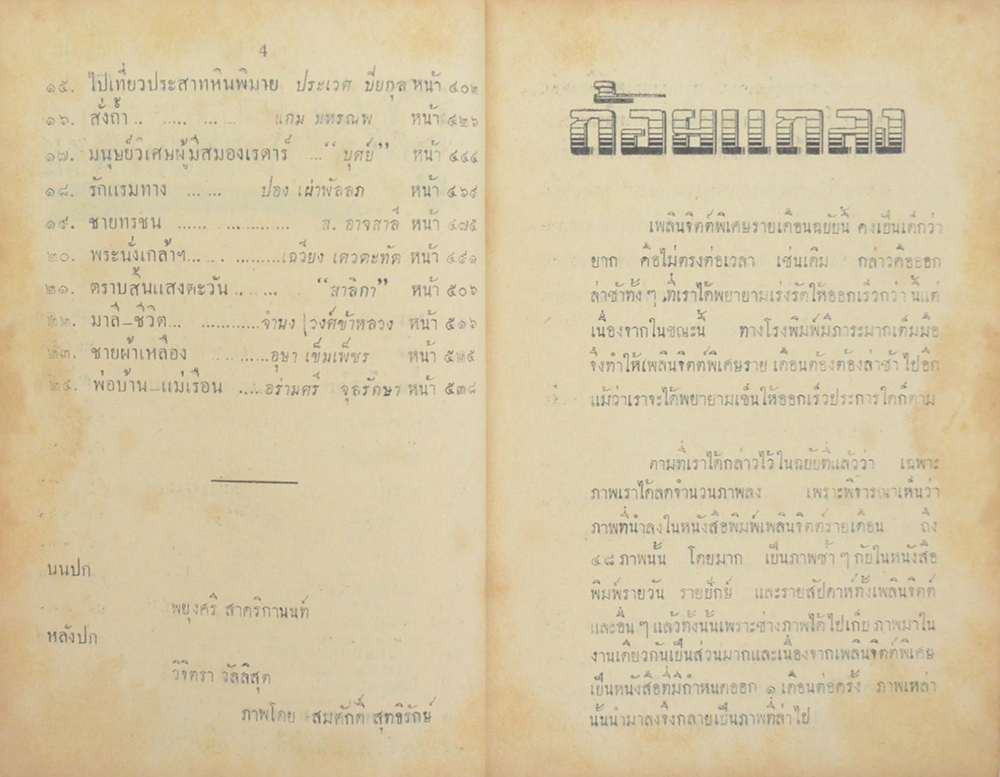 4
๑๕. ไปเที่ยวประสาทหินพิมาย ประเวศ บียกุล หน้า ๔๐๒
๑๖. สั่งถ้ำ .. ..... ... ... แกม มหรณพ หน้า ๔๒๖
๑๗. มนุษย์วิเศษผู้มีสมองเรดาร์ ... "บุศย์" หน้า ๔๔๔
๑๘. รักแรมทาง ... ... ปอง เผ่าพัลลภ หน้า ๔๖๙
๑๙. ชายทรชน ส. อาจสาลี หน้า ๔๗๕
๒๐. พระนั่งเกล้าฯ เฉวียง เศวตะทัต หน้า ๔๙๑
๒๑. ตราบสิ้นแสงตะวัน .. ... ... "สาลิกา" หน้า ๕๐๖
๒๒. มาลี-ชีวิต... ........... จำนง วงศ์ข้าหลวง หน้า ๕๑๖
๒๓. ชายผ้าเหลือง อุษา เข็มเพ็ชร หน้า ๕๒๕
๒๔. พ่อบ้าน-แม่เรือน อร่ามศรี จุลรักษา หน้า ๕๓๘
บนปก
พยุงศรี สาตริกานนท์
หลังปก
วิจิตรา วัลลิสุต
ภาพโดย สมศักดิ์ สุทธิรักษ์
ถ้อยแถลง
เพลินจิตต์พิเศษรายเดือนฉบับนี้ คงเป็นเด็กว่า
ยาก คือไม่ตรงต่อเวลา เช่นเดิม กล่าวคือออก
ล่าช้าทั้งๆ ที่เราได้พยายามเร่งรัดให้ออกเร็วกว่า นี้แต่
เนื่องจากในขณะนี้ ทางโรงพิมพ์มีภาระมากเต็มมือ
จึงทำให้เพลินจิตต์พิเศษราย เดือนต้องต้องล่าช้า ไปอีก
แม้ว่าเราจะได้พยายามเข็นให้ออกเร็วประการใดก็ตาม
ตามที่เราได้กล่าวไว้ในฉบับที่แล้วว่า เฉพาะ
ภาพเราได้ลดจำนวนภาพลง เพราะพิจารณาเห็นว่า
ภาพที่นำลงในหนังสือพิมพ์เพลินจิตต์รายเดือน ถึง
๔๘ ภาพนั้น โดยมาก เป็นภาพซ้ำ ๆ กับในหนังสือ
พิมพ์รายวัน รายปักษ์ และรายสัปดาห์ทั้งเพลินจิตต์
และอื่น ๆ แล้วทั้งนั้นเพราะช่างภาพได้ไปเก็บ ภาพมาใน
งานเดียวกันเป็นส่วนมากและเนื่องจากเพลินจิตต์พิเศษ
เป็นหนังสือที่มีกำหนดออก ๑ เดือนต่อครั้ง ภาพเหล่า
นั้นนำมาลงจึงกลายเป็นภาพที่ล่าไป